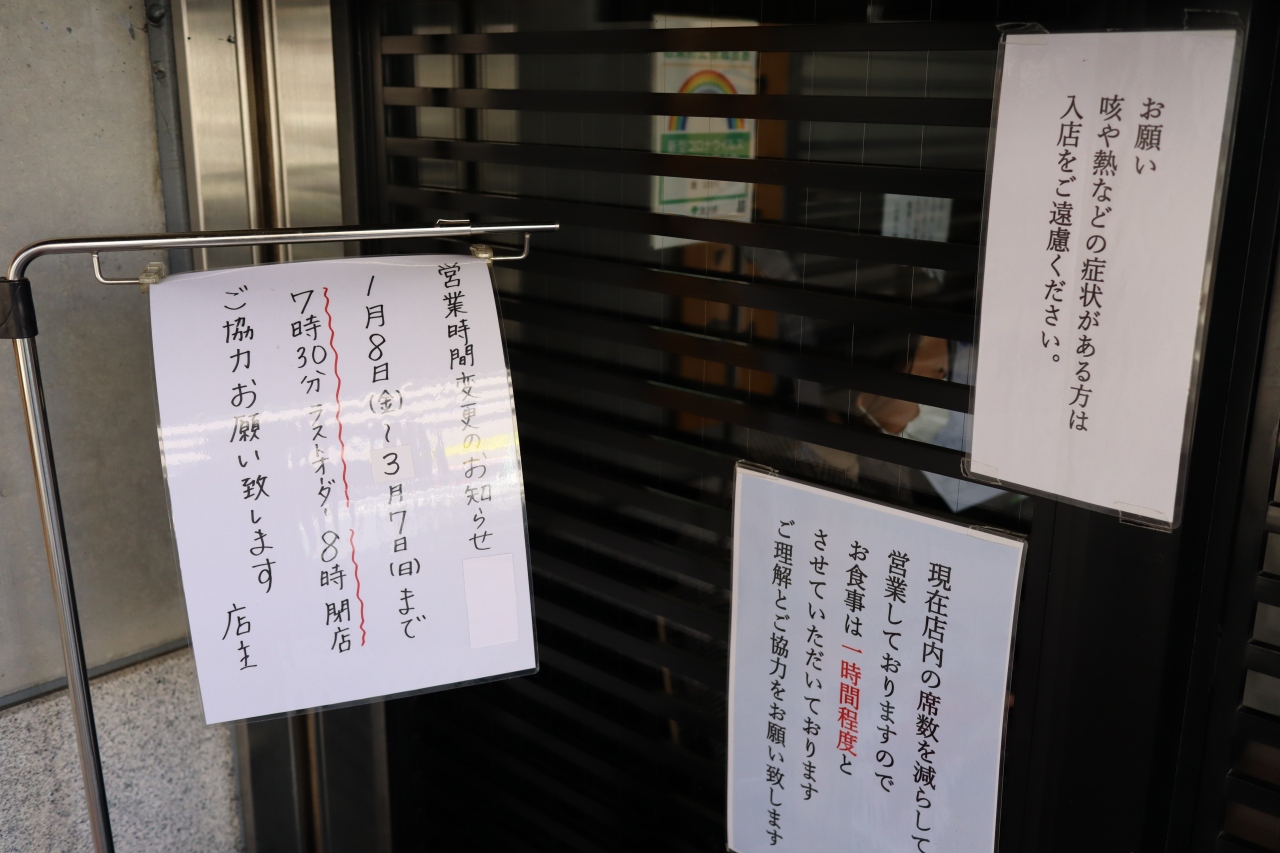 お願い
咳や熱などの症状がある方は
入店をご遠慮ください。
現在店内の席数を減らして
営業しておりますので
お食事は一時間程度と
させていただいております
ご理解とご協力をお願い致します
営業時間変更のお知らせ
1月8日(金)~3月7日(日)まで
7時30分ラストオーダー 8時閉店
ご協力お願い致します 店主
新型コロナウイルス